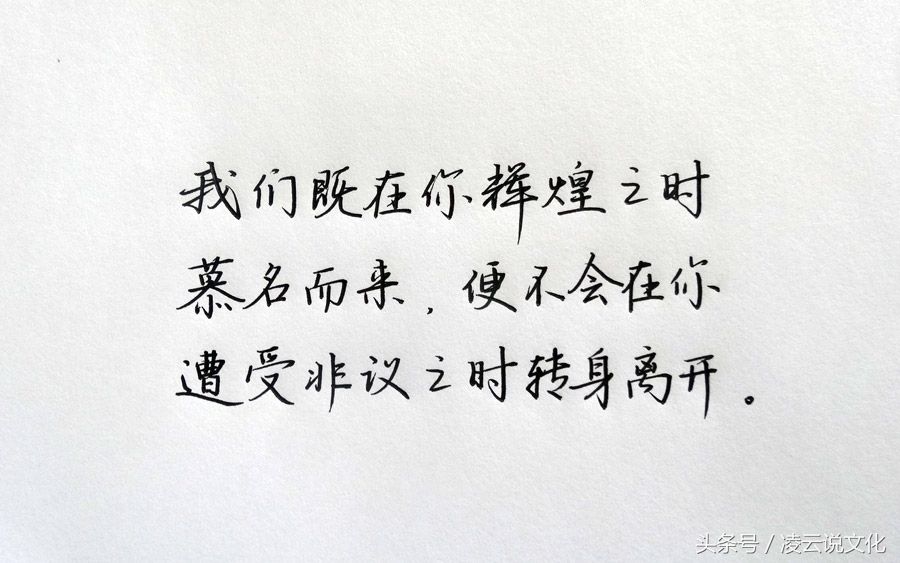 我们既在你辉煌之时
慕名而来，便不会在你
遭受非议之时转身离开。
头条号 / 凌云说文化